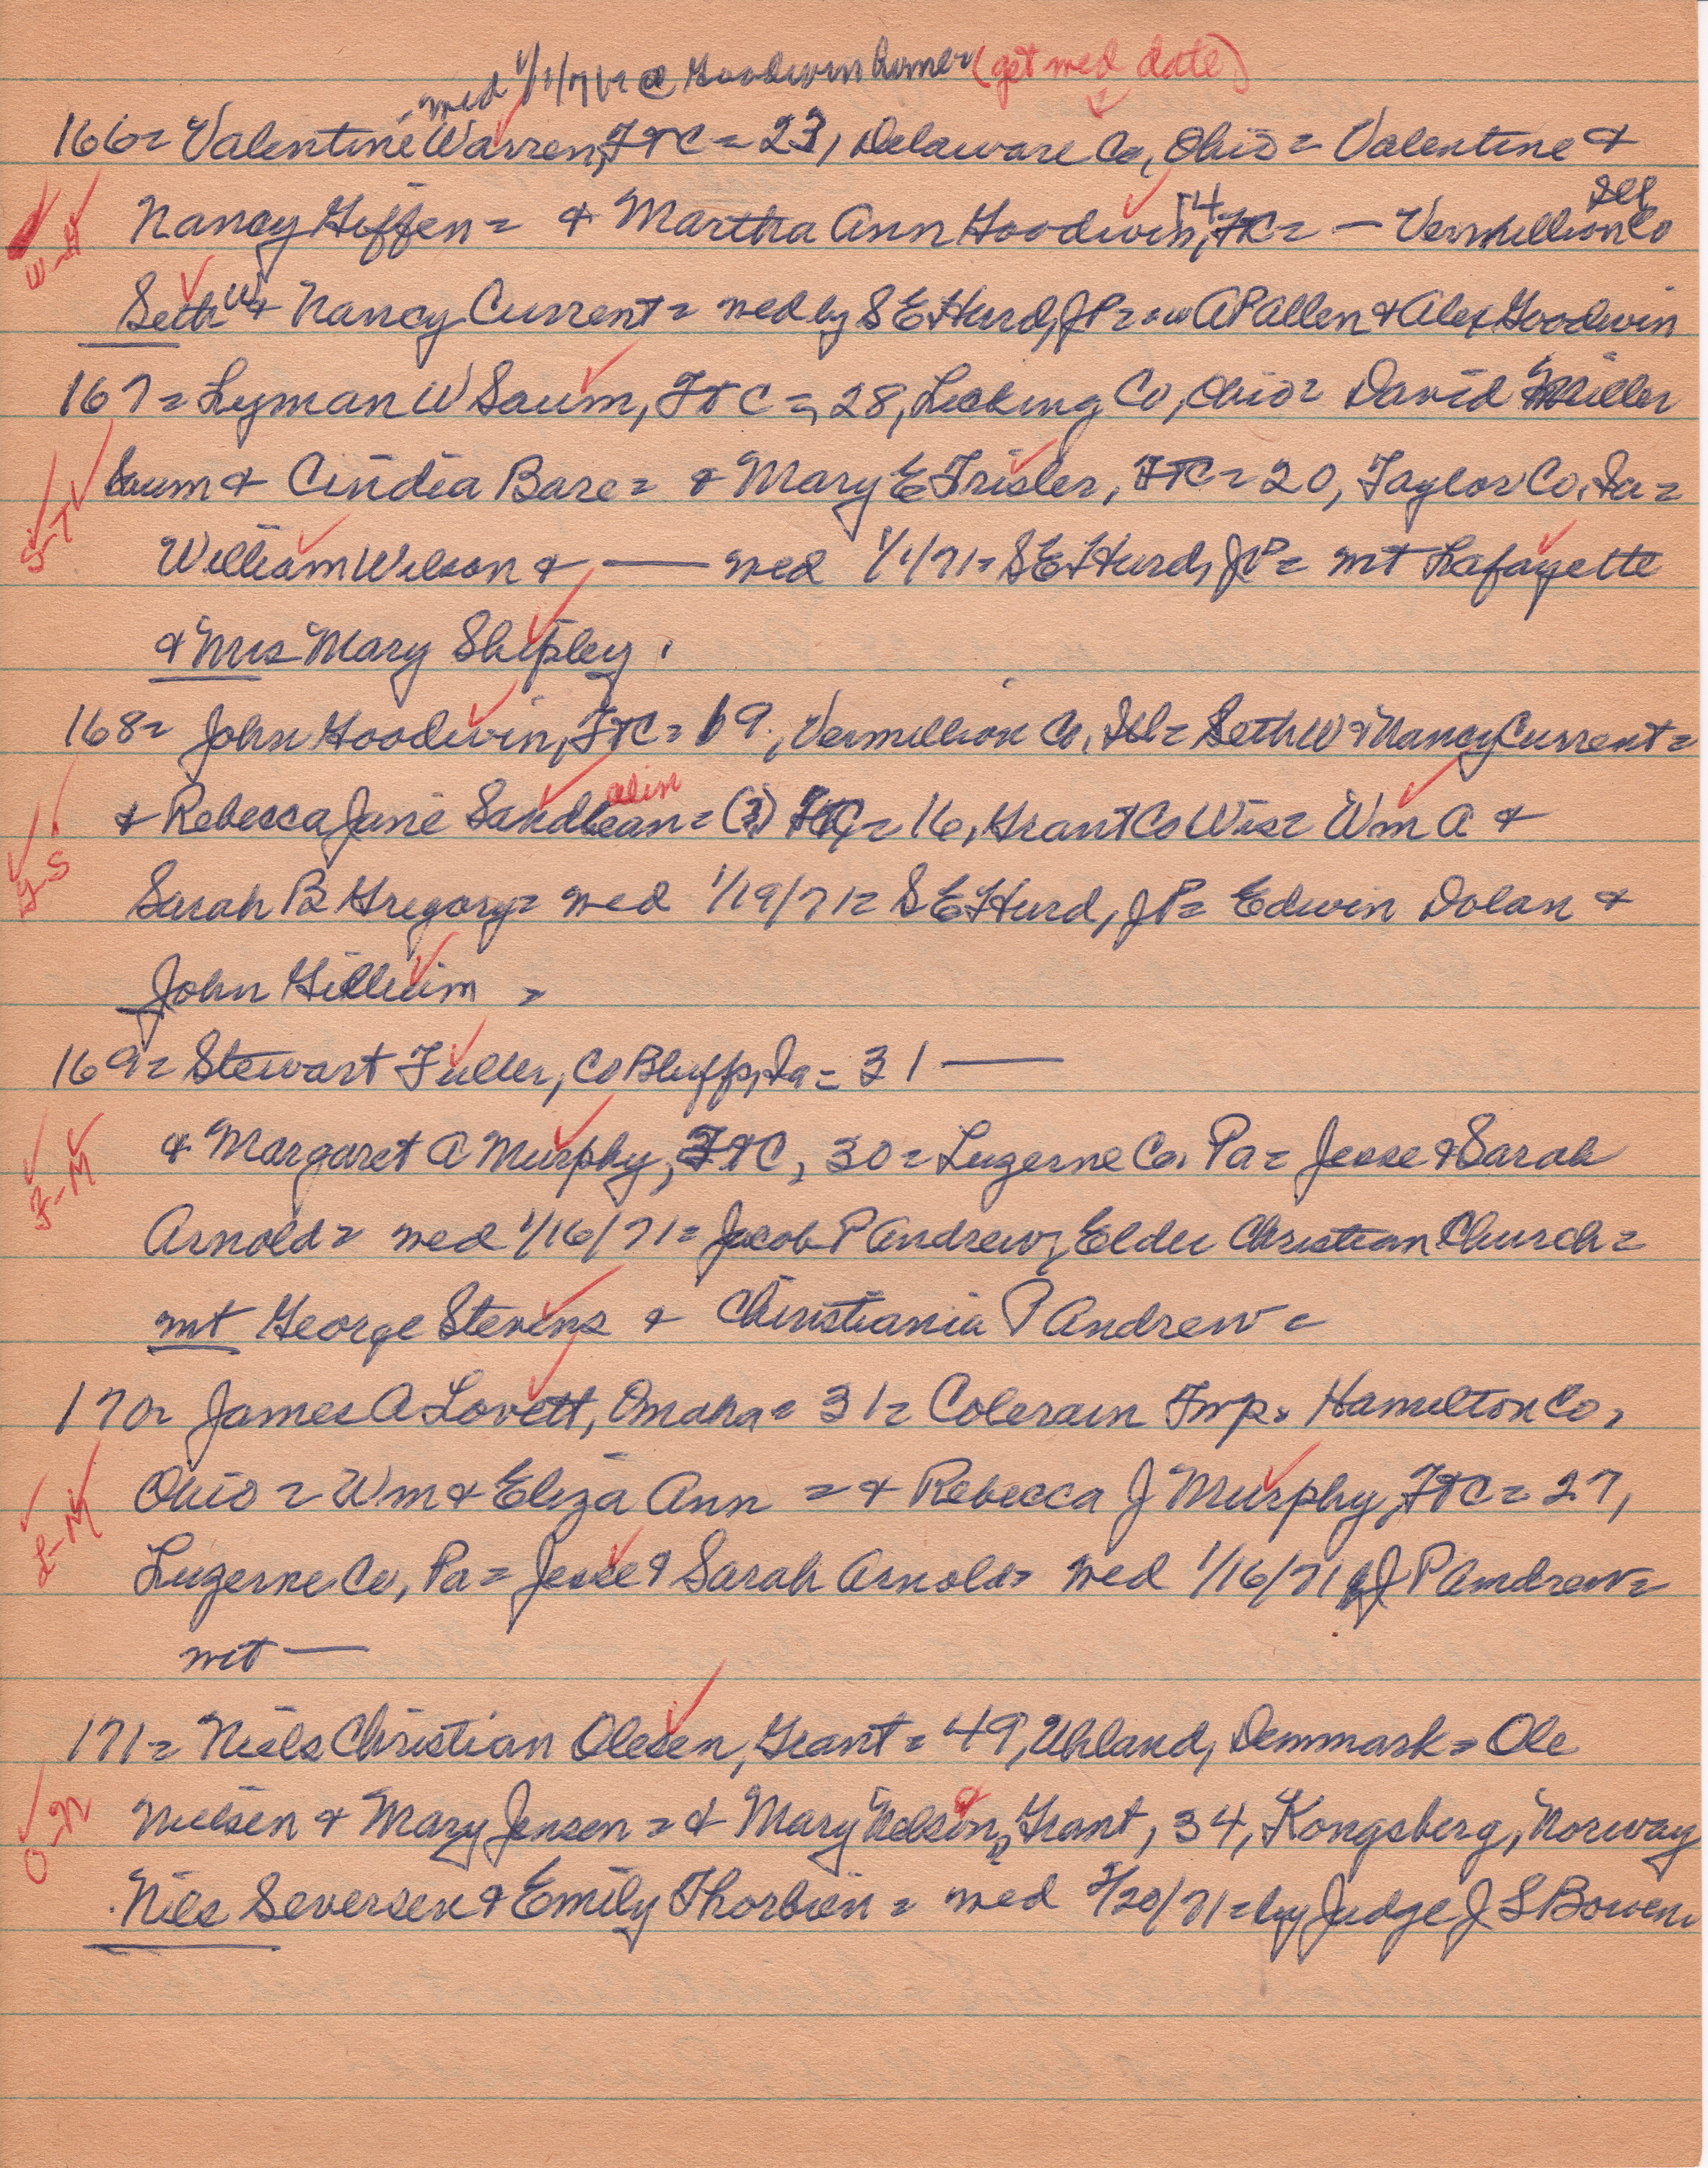 med 1/1/71 @ Goodwin home (get med date)
166= Valentine Warren, FTC = 23, Delaware Co, Ohio = Valentine &
Nancy Giffen = & Martha Ann Goodwin, 14 FTC = — Vermillion Co Ill
W-G
Seth W & Nancy Current = med by S E Hurd, JP = AP Allen & Alex Goodwin
167= Lyman W Saum, FTC =, 28, Licking Co, Ohio = David Miller
Saum & Cindia Bare = & Mary E Trisler, FTC = 20, Taylor Co, Ia =
S-T
William Wilson & — med 1/1/71 = S E Hurd, JP = Mt Lafayette
& Mrs Mary Shipley.
168= John Goodwin, FTC = 19, Vermillion Co, Ill = Seth W & Nancy Current =
& Rebecca Jane Sandbean = (?) FTC = 16, Grant Co Wis = Wm A &
G-S
Sarah B Gregory = med 1/19/71 = S E Hurd, JP = Edwin Dolan &
John Gillium =
169= Stewart Fuller, Co Bluffs, Ia = 31 —
& Margaret A Murphy, FTC, 30 = Luzerne Co. Pa = Jesse & Sarah
F-M
Arnold = med 1/16/71 = Jacob P Andrew, Elder Christian Church =
mt George Stevens & Christiania P Andrew =
170= James A Lovett, Omaha = 31 = Colerain Twp. Hamilton Co,
Ohio = Wm & Eliza Ann = & Rebecca J Murphy, FTC = 27,
L-M
Luzerne Co, Pa = Jesse & Sarah Arnold = med 1/16/71 by J P Andrew =
wit —
171= Niels Christian Olesen, Grant = 49, Uhland, Demmark = Ole
Nielsen & Mary Jensen = & Mary Nelson, Grant, 34, Kongsberg, Norway
O-N
Niles Seversen & Emily Thorbien = med 2/20/71 = by Judge J S Bowen